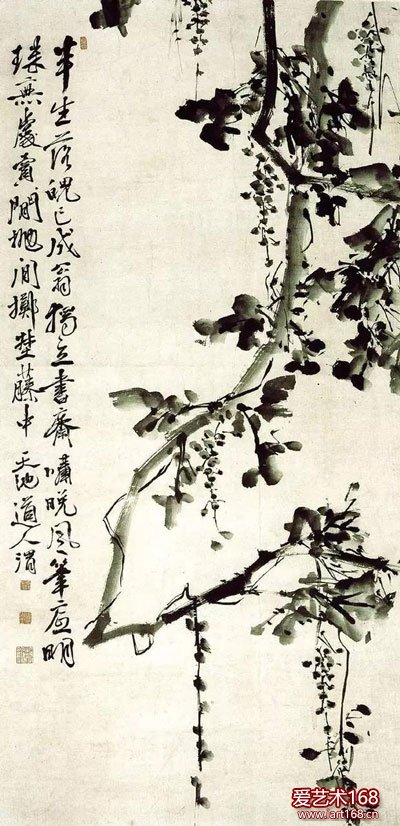 半生落魄已成翁獨立書齋嘯晚風筆底明
珠無處賣閒拋閒擲埜藤中 天池道人渭
爱艺术168
www.art168.cn